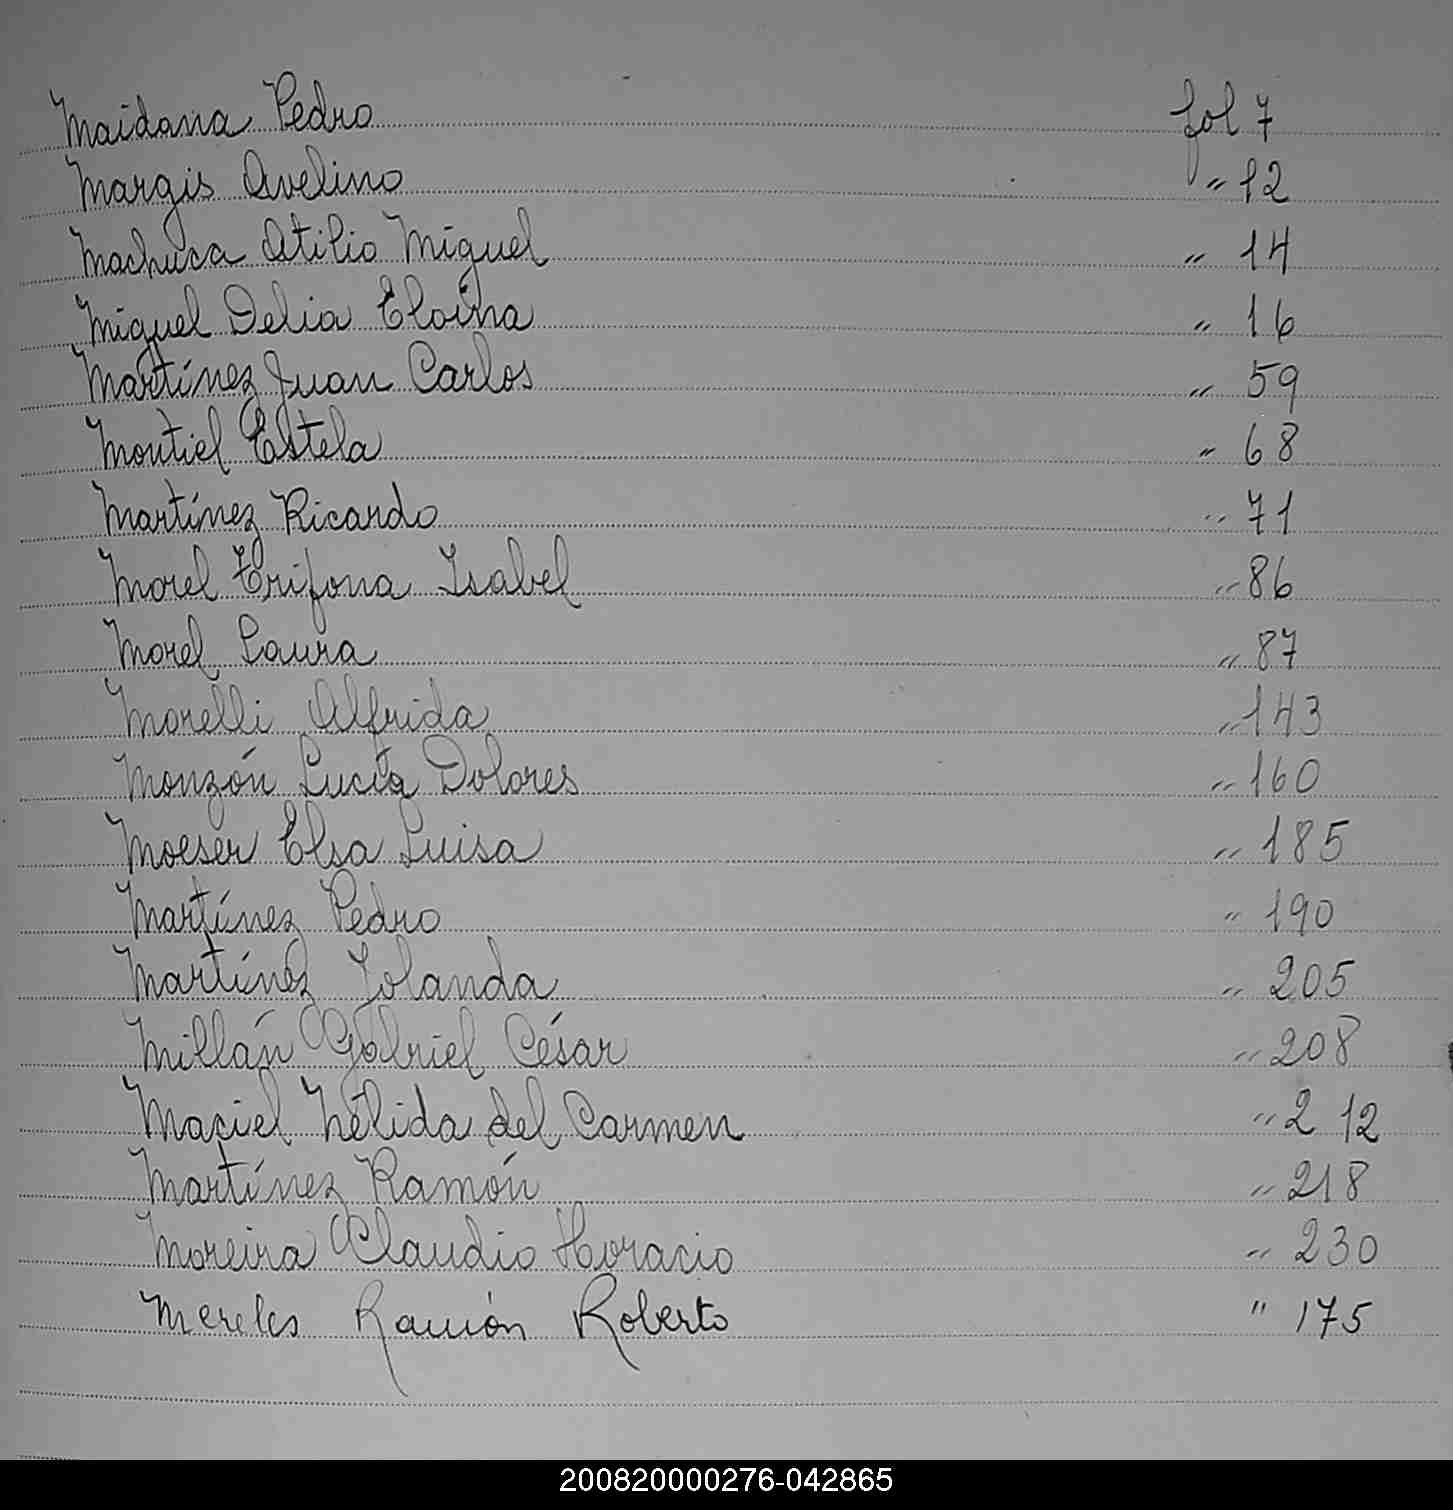 Maidana Pedro fol 7
Margis Avelino " 12
Machuca Atilio Miguel " 14
Miguel Delia Eloina " 16
Martínez Juan Carlos " 59
Montiel Estela " 68
Martínez Ricardo " 71
Morel Trifona Isabel " 86
Morel Laura " 87
Morelli Alfrida " 143
Monzón Lucía Dolores " 160
Moeser Elsa Luisa " 185
Martínez Pedro " 190
Martínez Iolanda " 205
Millán Gabriel César " 208
Maciel Nélida del Carmen " 212
Martínez Ramón " 218
Moreira Claudio Horacio " 230
Mereles Ramón Roberto " 175
200820000276-042865